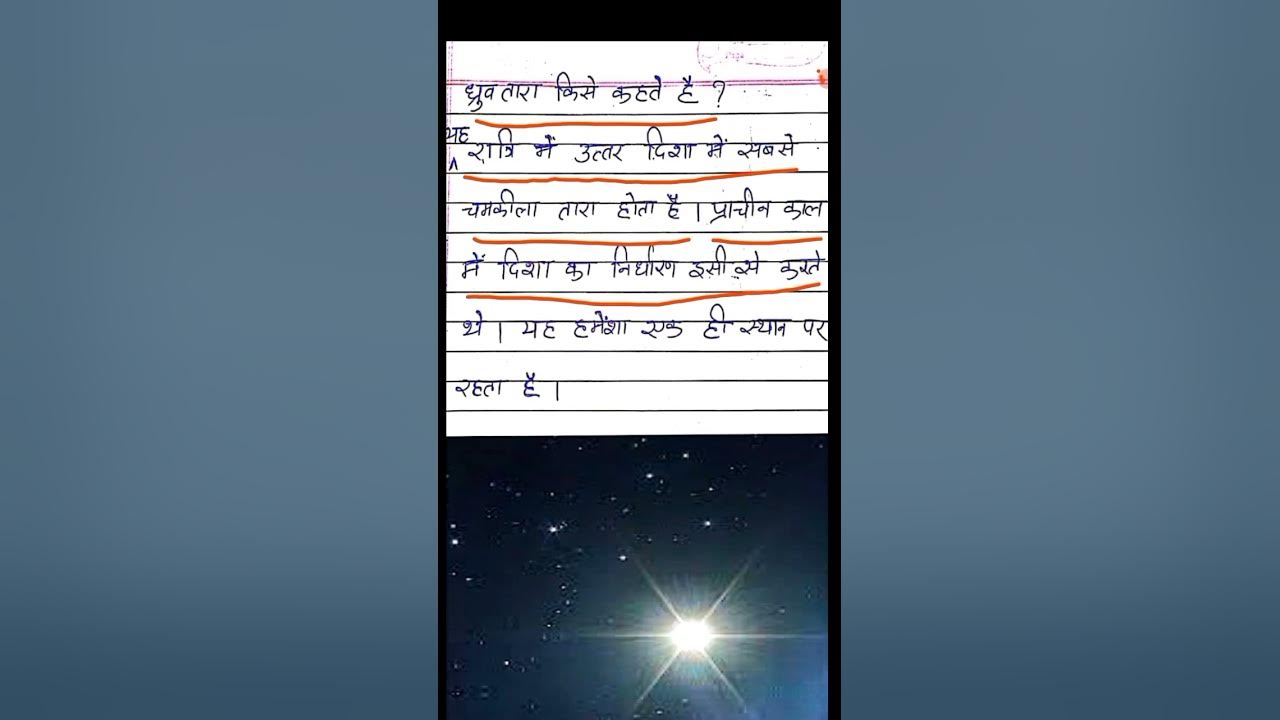 ध्रुव तारा किसे कहते है ?
यह
रात्रि में उत्तर दिशा में सबसे
चमकीला तारा होता है । प्राचीन काल
में दिशा का निर्धारण इसी से करते
थे । यह हमेंशा एक ही स्थान पर
रहता है ।